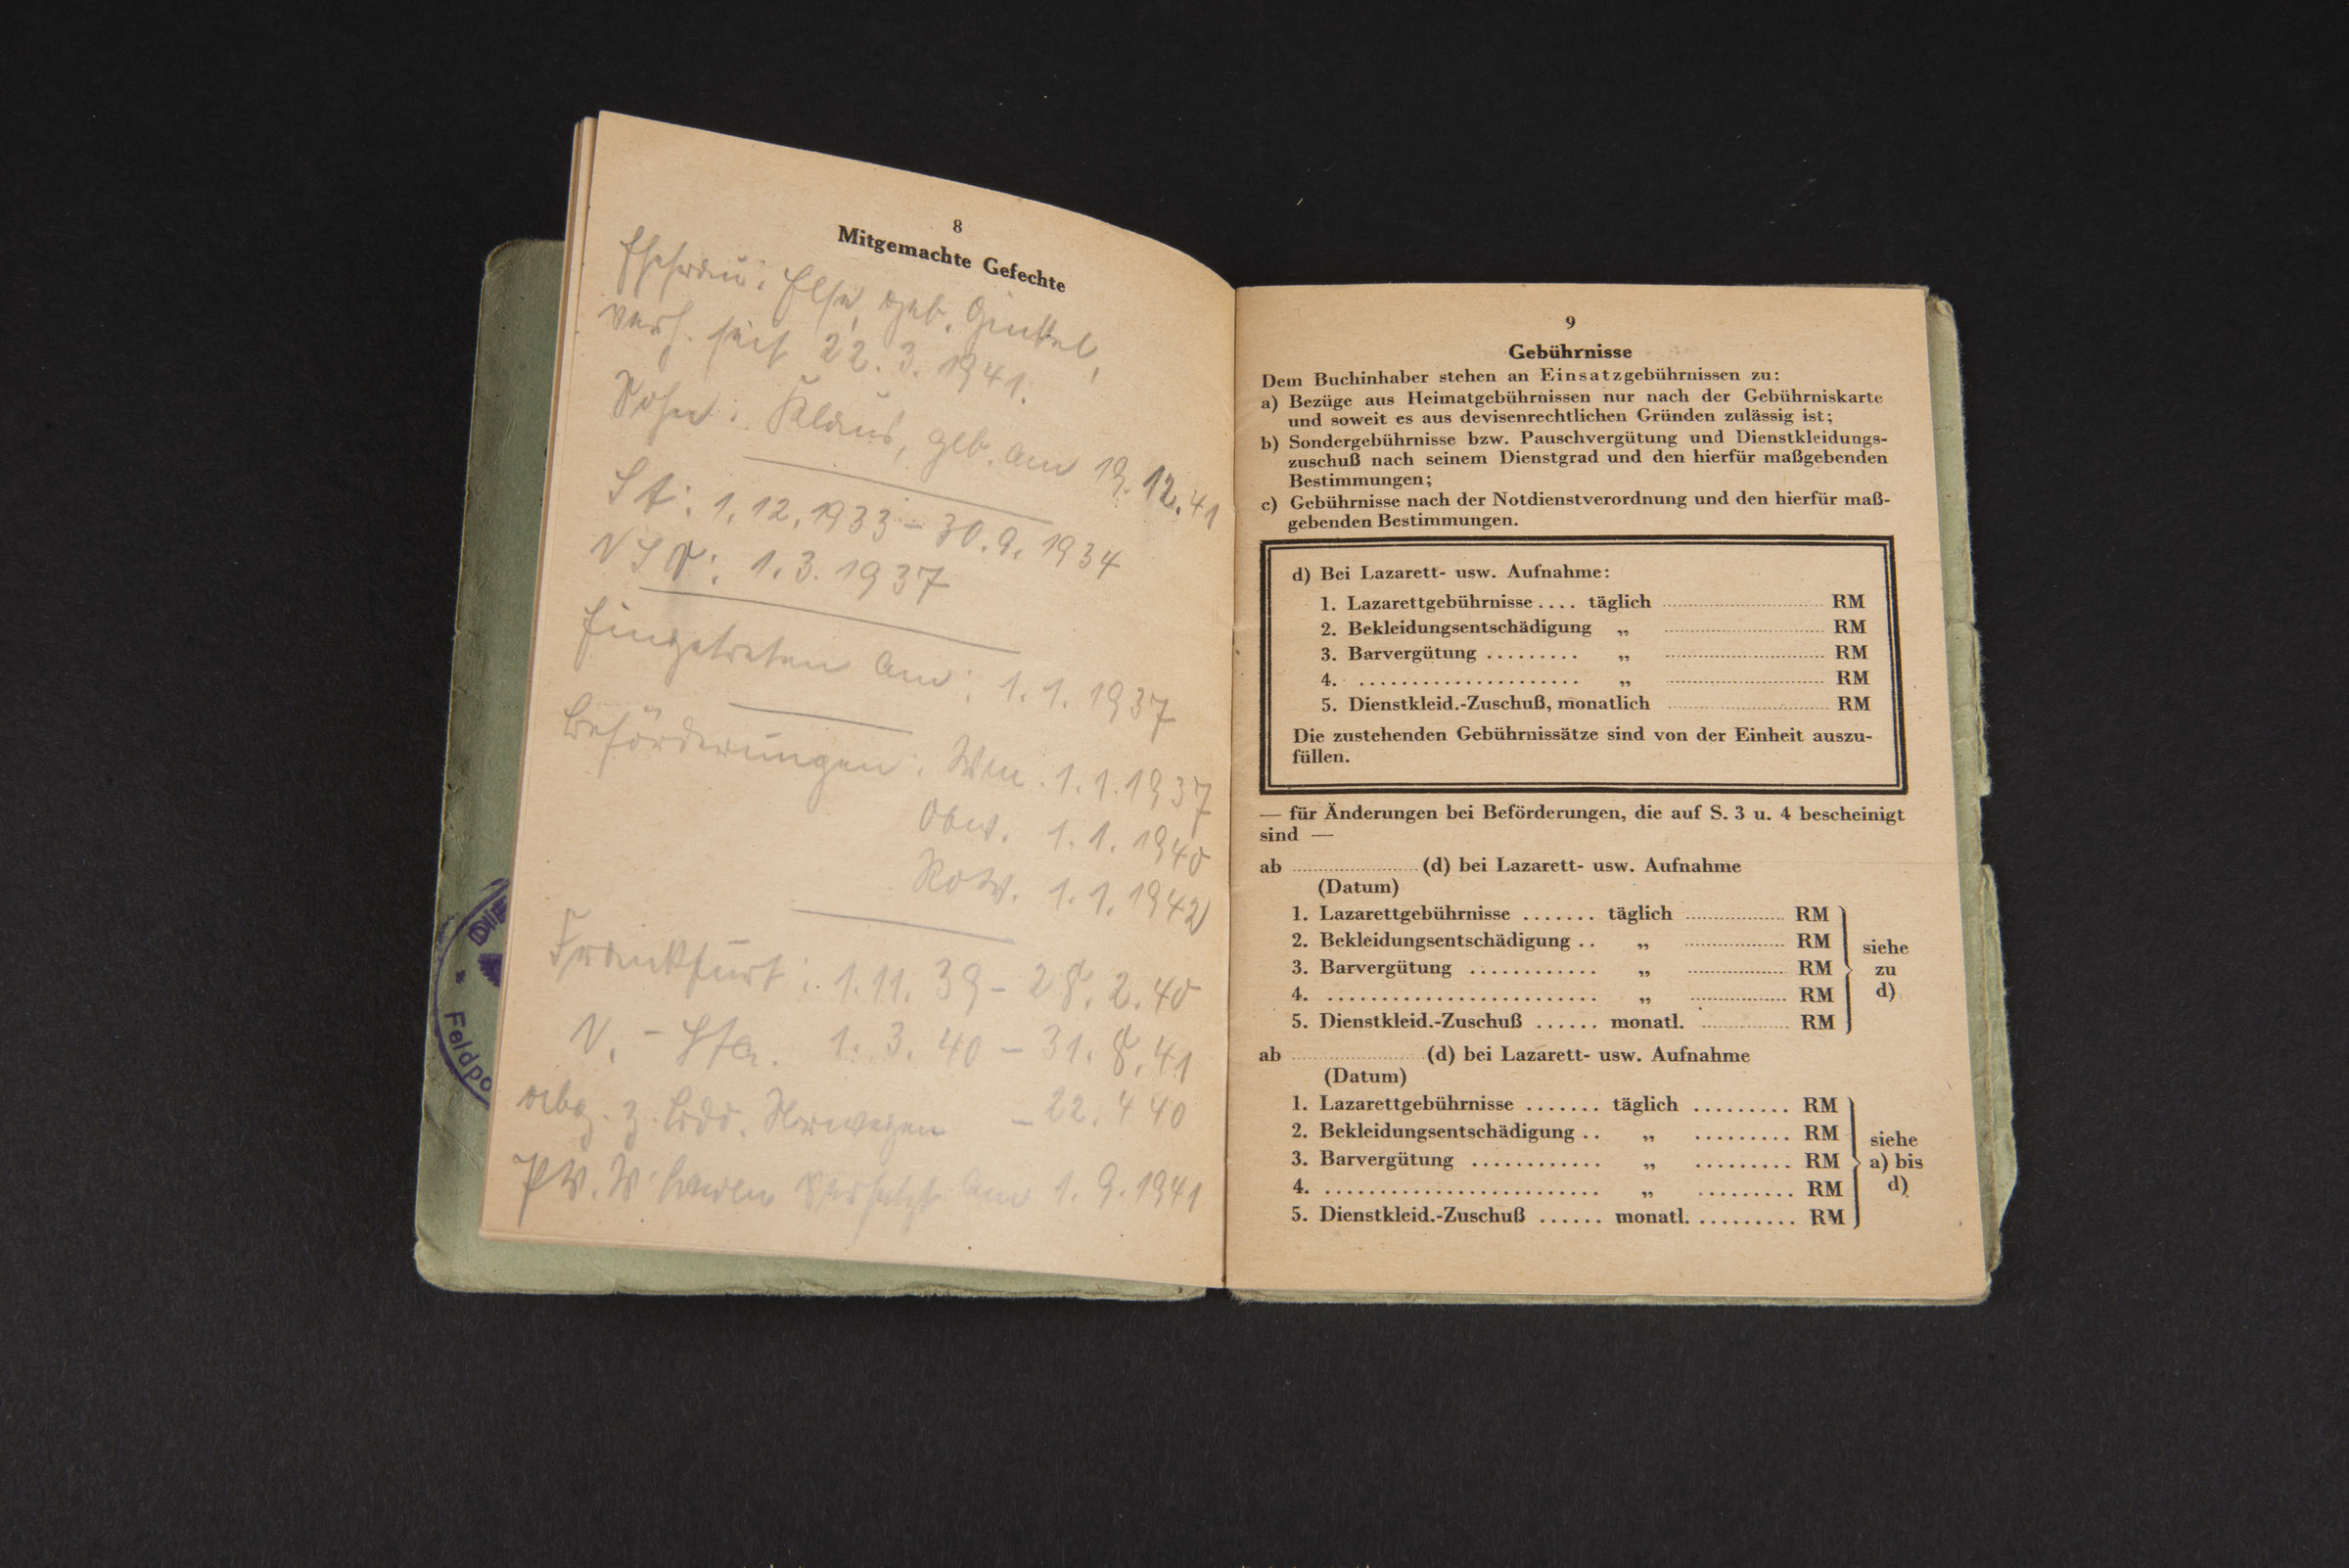 8
Mitgemachte Gefechte
Ehefrau: Else, geb. Gintkel,
verh. seit 22. 3. 1941.
Sohn: Klaus, geb. am 19. 12. 41
SA: 1. 12. 1933 – 30. 9. 1934
NSV: 1. 3. 1937
Eingetreten am: 1. 1. 1937
Beförderungen: Wm. 1. 1. 1937
Obw. 1. 1. 1940
Row. 1. 1. 1942
Frankfurt: 1. 11. 39 – 28. 2. 40
N. – 1. 3. 40 – 31. 8. 41
z. Norwegen – 22. 4 40
versetzt am 1. 9. 1941
Feldpo
9
Gebührnisse
Dem Buchinhaber stehen an Einsatzgebührnissen zu:
a) Bezüge aus Heimatgebührnissen nur nach der Gebührniskarte
und soweit es aus devisenrechtlichen Gründen zulässig ist;
b) Sondergebührnisse bzw. Pauschvergütung und Dienstkleidungs-
zuschuß nach seinem Dienstgrad und den hierfür maßgebenden
Bestimmungen;
c) Gebührnisse nach der Notdienstverordnung und den hierfür maß-
gebenden Bestimmungen.
d) Bei Lazarett- usw. Aufnahme:
1. Lazarettgebührnisse .... täglich .......... RM
2. Bekleidungsentschädigung „ .......... RM
3. Barvergütung ......... „ .......... RM
4. ..................... „ .......... RM
5. Dienstkleid.-Zuschuß, monatlich .......... RM
Die zustehenden Gebührnissätze sind von der Einheit auszu-
füllen.
— für Änderungen bei Beförderungen, die auf S. 3 u. 4 bescheinigt
sind —
ab .......... (d) bei Lazarett- usw. Aufnahme
(Datum)
1. Lazarettgebührnisse ....... täglich .......... RM
2. Bekleidungsentschädigung .. „ .......... RM
3. Barvergütung ............ „ .......... RM
4. ......................... „ .......... RM
5. Dienstkleid.-Zuschuß ...... monatl. .......... RM
siehe
zu
d)
ab .......... (d) bei Lazarett- usw. Aufnahme
(Datum)
1. Lazarettgebührnisse ....... täglich ......... RM
2. Bekleidungsentschädigung .. „ ......... RM
3. Barvergütung ............ „ ......... RM
4. ......................... „ ......... RM
5. Dienstkleid.-Zuschuß ...... monatl. .......... RM
siehe
a) bis
d)